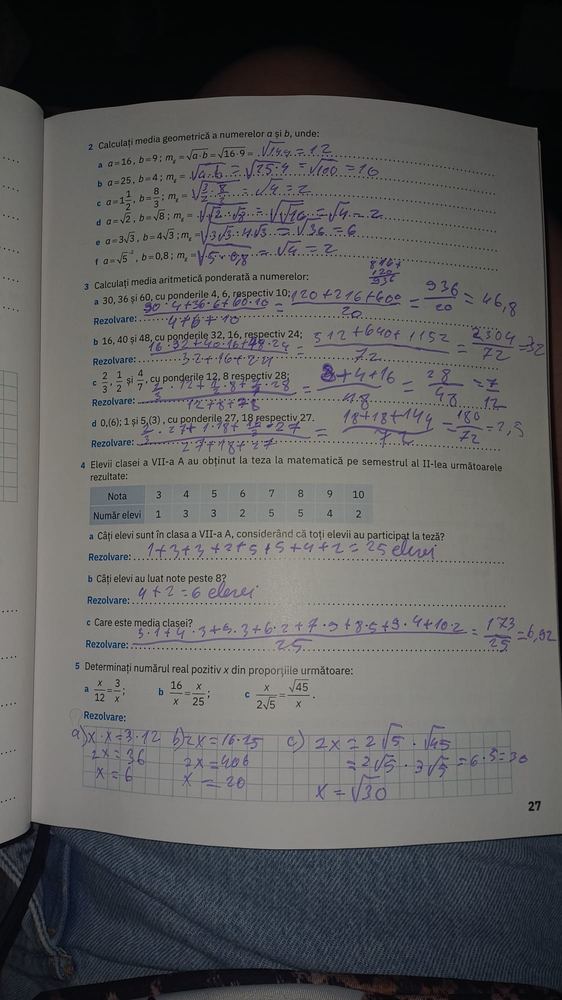 2 Calculați media geometrică a numerelor a și b, unde:
a a=16, b=9; m_g = √a·b = √16·9 = √144 = 12
b a=25, b=4; m_g = √a·b = √25·4 = √100 = 10
c a=1 1/2, b= 8/3; m_g = √3/2 · 8/3 = √4 = 2
d a=√2, b=√8; m_g = √√2·√8 = √√16 = √4 = 2
e a=3√3, b=4√3; m_g = √3√3·4√3 = √36 = 6
f b=0,8; m_g = √5·0,8 = √4 = 2
3 Calculați media aritmetică ponderată a numerelor:
816+
120
936
a 30, 36 și 60, cu ponderile 4, 6, respectiv 10;
Rezolvare: 30·4+36·6+60·10 / 4+6+10 = 120+216+600 / 20 = 936 / 20 = 46,8
b 16, 40 și 48, cu ponderile 32, 16, respectiv 24;
Rezolvare: 16·32+40·16+48·24 / 32+16+24 = 512+640+1152 / 72 = 2304 / 72 = 32
c 2/3, 1/2 și 4/7, cu ponderile 12, 8 respectiv 28;
Rezolvare: 2/3·12+1/2·8+4/7·28 / 12+8+28 = 8+4+16 / 48 = 28 / 48 = 7 / 12
d 0,(6); 1 și 5,(3), cu ponderile 27, 18 respectiv 27.
Rezolvare: 27+18+27 = 18+18+144 / 72 = 180 / 72 = 2,5
4 Elevii clasei a VII-a A au obținut la teza la matematică pe semestrul al II-lea următoarele
rezultate:
Nota 3 4 5 6 7 8 9 10
Număr elevi 1 3 3 2 5 5 4 2
a Câți elevi sunt în clasa a VII-a A, considerând că toți elevii au participat la teză?
Rezolvare: 1+3+3+2+5+5+4+2=25 elevi
b Câți elevi au luat note peste 8?
Rezolvare: 4+2=6 elevi
c Care este media clasei?
Rezolvare: 3·1+4·3+5·3+6·2+7·5+8·5+9·4+10·2 / 25 = 173 / 25 = 6,92
5 Determinați numărul real pozitiv x din proporțiile următoare:
a x/12 = 3/x; b 16/x = x/25; c x/2√5 = √45/x.
Rezolvare:
a) x·x=3·12 b) 2x=16·25 c) 2x=2√5·√45
2x=36 2x=400 =2√5·3√5=6·5=30
x=6 x=20 x=√30
27